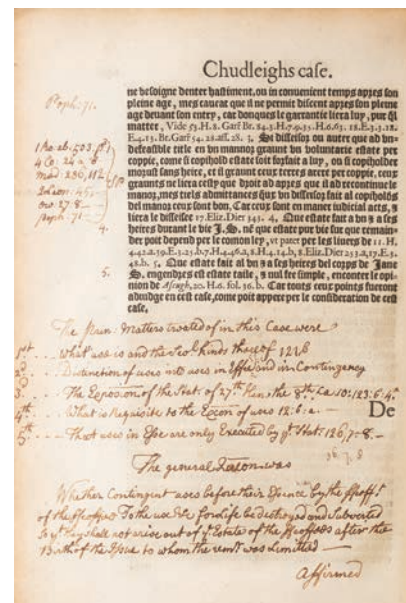 Chudleighs case.
ne besoigne denter hastiment, ou in convenient temps apres son
pleine age, mes caueat que il ne permit discent apres son pleine
age deuant son entry, car donques le garrantie liera luy, pur q̃l
matter, Vide 53.H.8. Garr̃ Br. 84.3.H.7.9.35.H.6.63.18.E.3.12.
E.4.13. Br. Garr̃ 54. 28. ass. 28. 3. Si disseisor ou auter que ad vn
defeasible title en vn mannoꝛ graunt vn voluntarie estate per
coppie, come si copihold estate soit forfait a luy, ou si copiholder
moꝛust sans heire, et il graunt ceux terres arere per coppie, ceux
graunts ne liera cesty que droit ad apres que il ad recontinue le
manoꝛ, mes tiels admittances
del manoꝛ ceux sont bon, Car ceux sont en maner iudicial acts, &
liera le disseisee 17. Eliz. Dier 343. 4. Que estate fait a vn & a ses
heires durant le vie J. S. né que estate pur vie sue que remain-
der poit depend per le comon ley, vt patet per les liuers de 11. H.
4.42.a.
48.b. 5. Que estate fait al vn & a ses heires del corps de Jane
S. engendres est estate taile, & nul fee simple, enconter le opi-
nion de Ascugh, 20. H. 6. fol. 36. b. Car touts ceux points fueront
adiudge en cest case, come poit apperer per le consideration de cest
case.
Poph: 71.
4 Co: 24 a b
ow: 27. 8 -
poph: 71 -
4.
5.
The Main: Matters treated of in this Case were
1st ... What use is and the sevl. kinds thereof 121, b
2 ... Distinction of uses into uses in Esse and in Contingency
3 ... The Exposicon of the Stat. of 27th Hen: the 8th
4th ... What is Requisite to the Execon of uses 126. a. -
De
5th ... That uses in Esse are only Executed by yt Stat. 126, 7-8. -
The general Reason was
Whether Contingent uses before their Essence by the ffeoffmt
of the ffeoffees To the use &c for Life be destroyed and Subverted
So yt they shall not arise out of ye Estate of the ffeoffees after the
Birth of the Issue to whom the remr was Limitted -
Affirmed